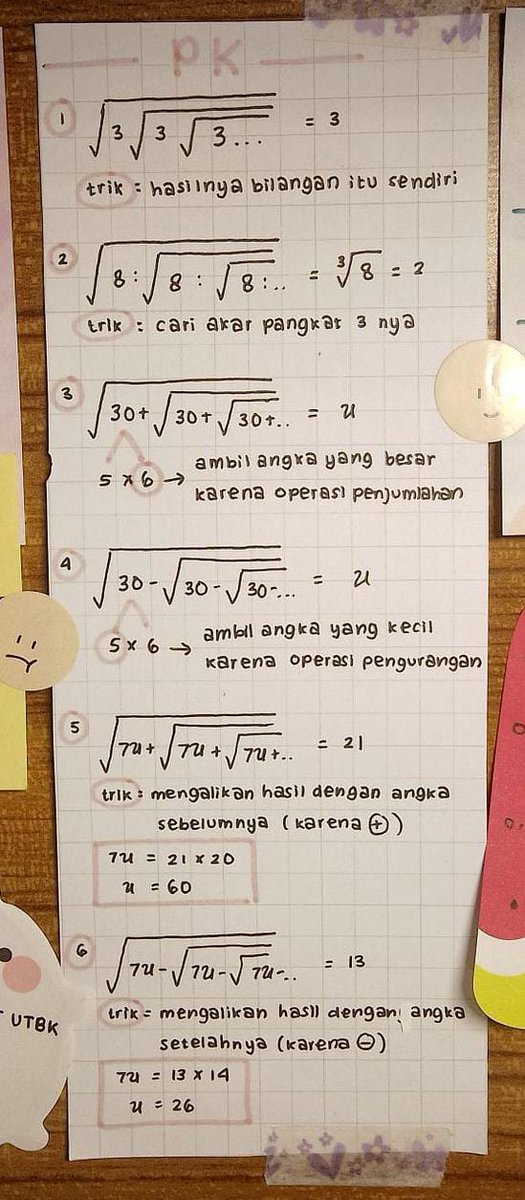 PK
1 √3√3√3... = 3
trik : hasilnya bilangan itu sendiri
2 √8:√8:√8:.. = ³√8 = 2
trik : cari akar pangkat 3 nya
3 √30+√30+√30+.. = u
5 x 6 → ambil angka yang besar
karena operasi penjumlahan
4 √30-√30-√30-... = u
5 x 6 → ambil angka yang kecil
karena operasi pengurangan
5 √7u+√7u+√7u+.. = 21
trik : mengalikan hasil dengan angka
sebelumnya (karena ⊕)
7u = 21 x 20
u = 60
6 √7u-√7u-√7u-.. = 13
trik = mengalikan hasil dengan angka
setelahnya (karena ⊖)
7u = 13 x 14
u = 26
UTBK